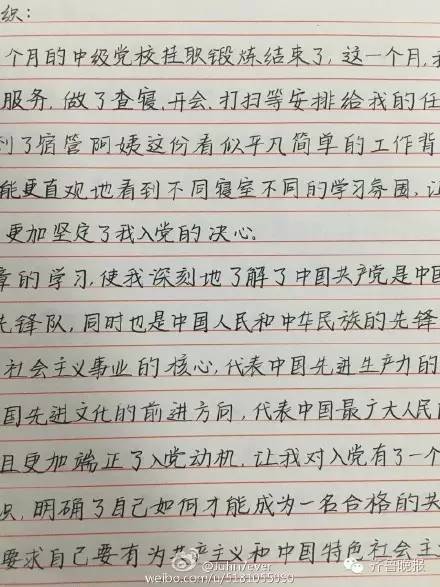 织：
个月的中级党校挂职锻炼结束了，这一个月，我
服务，做了查寝、开会、打扫等安排给我的任
到了宿管阿姨这份看似平凡简单的工作背
能更直观地看到不同寝室不同的学习氛围，让
更加坚定了我入党的决心。
章的学习，使我深刻地了解了中国共产党是中国
先锋队，同时也是中国人民和中华民族的先锋
社会主义事业的核心，代表中国先进生产力的
国先进文化的前进方向，代表中国最广大人民的
且更加端正了入党动机，让我对入党有了一个
识，明确了自己如何才能成为一名合格的共
要求自己要有为共产主义和中国特色社会主
weibo.com/u/5131055090
齐鲁晚报